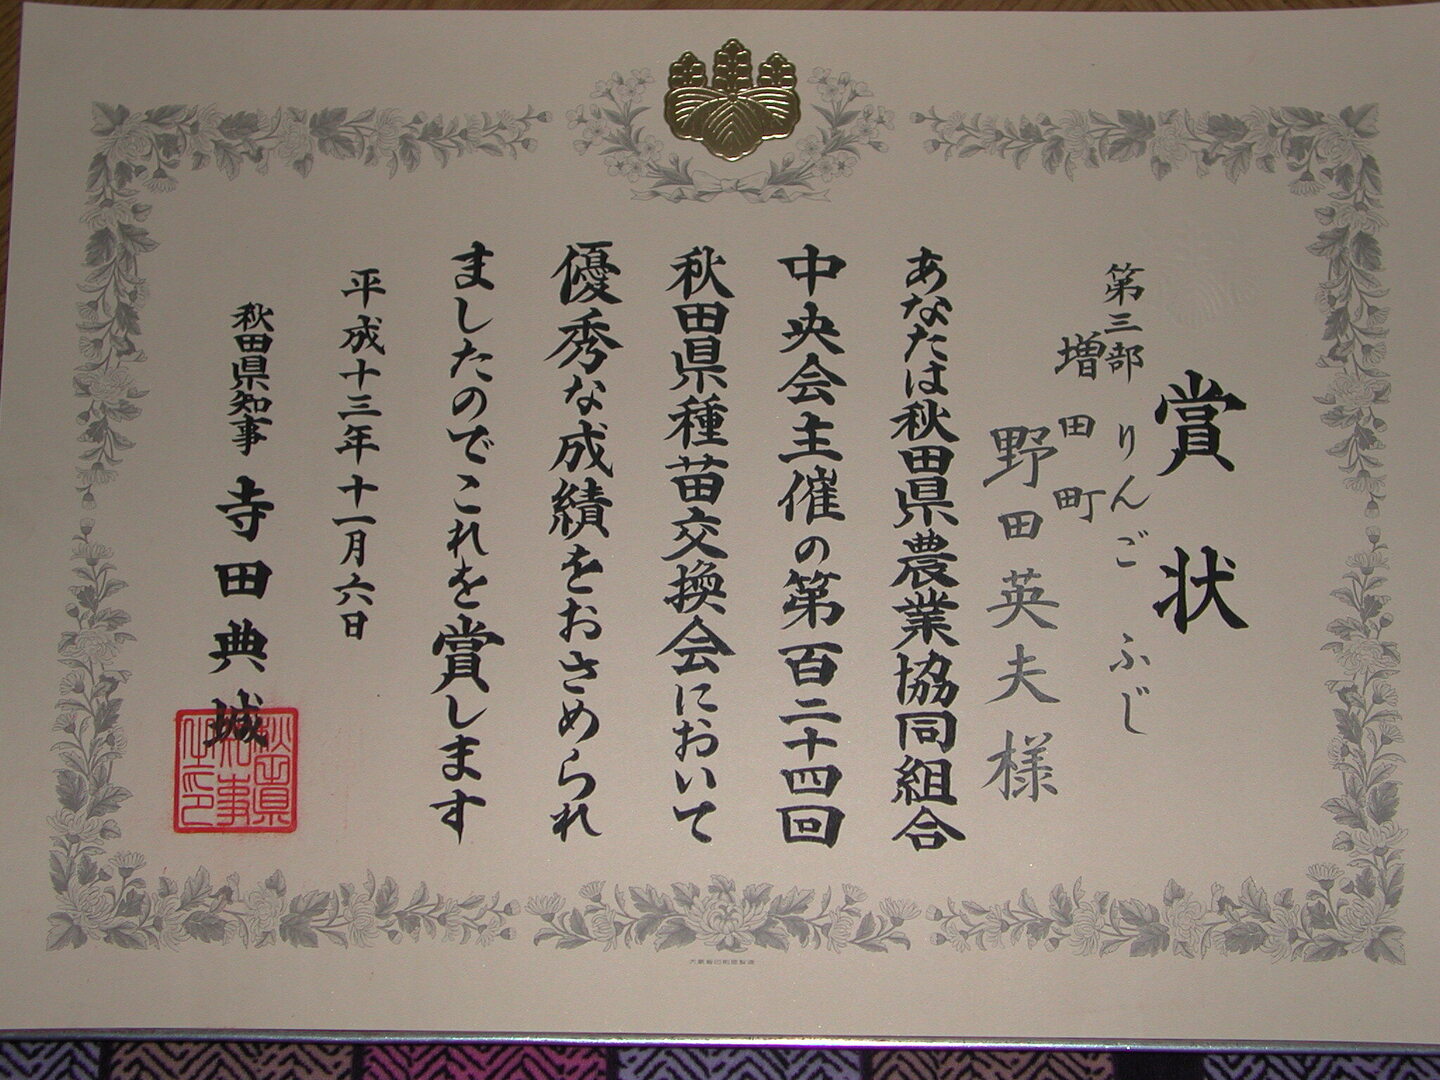 賞状
第三部 りんご ふじ
増田町
野田英夫様
あなたは秋田県農業協同組合
中央会主催の第百二十四回
秋田県種苗交換会において
優秀な成績をおさめられ
ましたのでこれを賞します
平成十三年十一月六日
秋田県知事 寺田典城
秋田県
知事
之印